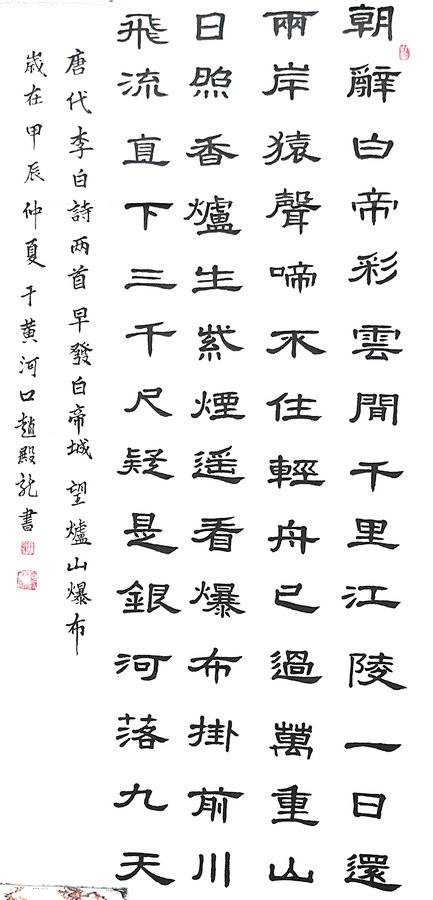 朝辭白帝彩雲間千里江陵一日還
兩岸猿聲啼不住輕舟已過萬重山
日照香爐生紫煙遥看瀑布掛前川
飛流直下三千尺疑是銀河落九天
唐代李白詩两首早發白帝城望爐山爆布
歲在甲辰仲夏于黄河口趙殿龙書